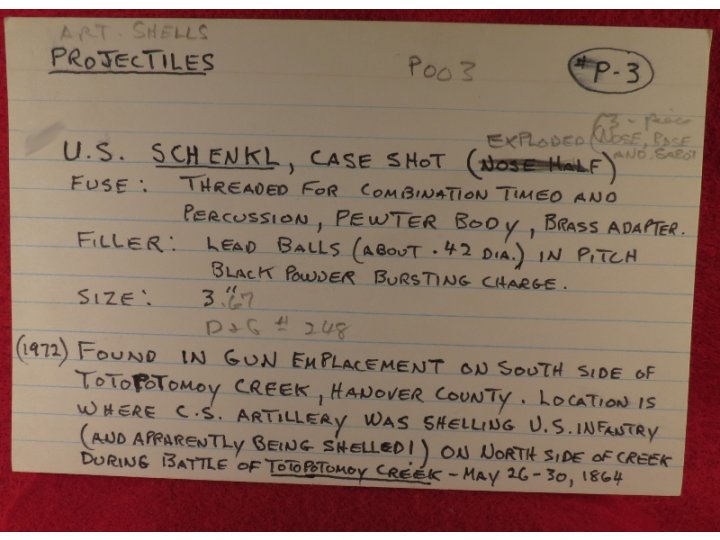 ART. SHELLS
PROJECTILES
P003
#P-3
(3-piece
EXPLODED (NOSE, BASE
AND SABOT
U.S. SCHENKL, CASE SHOT (NOSE HALF)
FUSE: THREADED FOR COMBINATION TIMED AND
PERCUSSION, PEWTER BODY, BRASS ADAPTER.
FILLER: LEAD BALLS (ABOUT .42 DIA.) IN PITCH
BLACK POWDER BURSTING CHARGE.
SIZE: 3."67
D&G # 248
(1972) FOUND IN GUN EMPLACEMENT ON SOUTH SIDE OF
TOTOPOTOMOY CREEK, HANOVER COUNTY. LOCATION IS
WHERE C.S. ARTILLERY WAS SHELLING U.S. INFANTRY
(AND APPARENTLY BEING SHELLED!) ON NORTH SIDE OF CREEK
DURING BATTLE OF TOTOPOTOMOY CREEK - MAY 26-30, 1864